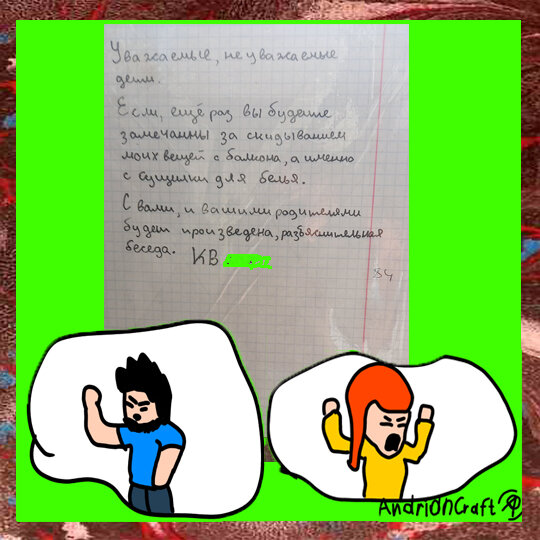 Уважаемые, не уважаемые
дети.
Если, ещё раз вы будете
замечанны за скидыванием
моих вещей с балкона, а именно
с сушилки для белья.
С вами, и вашими родителями
будет произведена, разъяснительная
беседа. КВ
84
AndriOnCraft